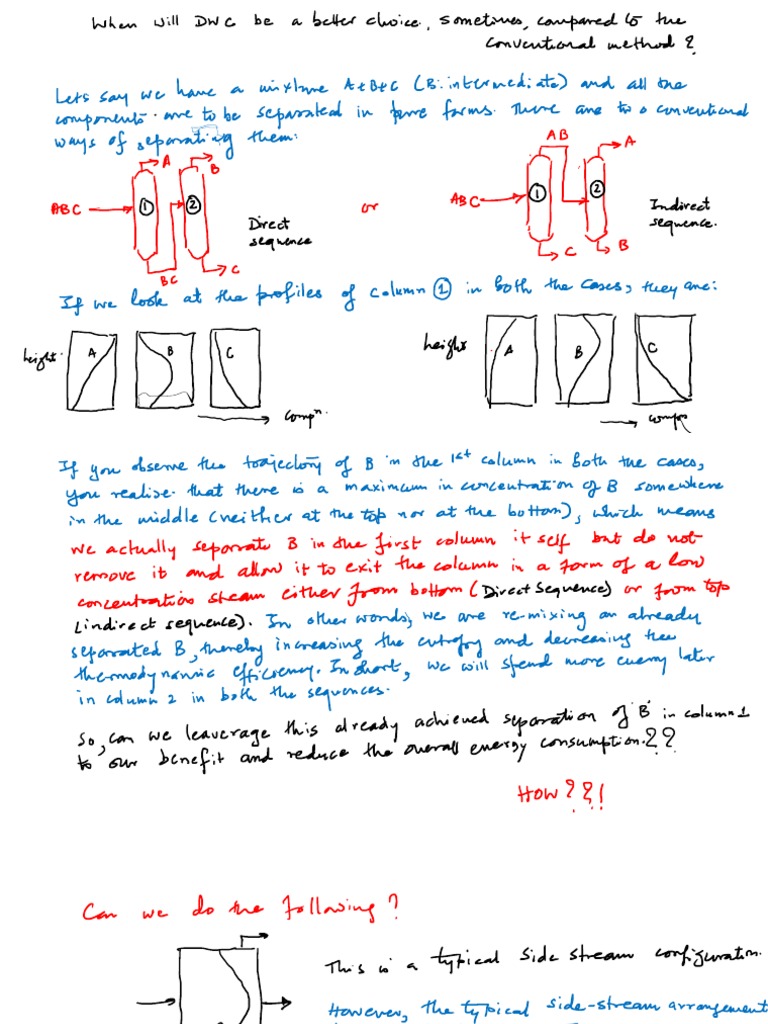 When will DWC be a better choice, sometimes, compared to the
conventional method?
Lets say we have a mixture A+B+C (B: intermediate) and all the
components are to be separated in pure forms. There are two conventional
ways of separating them:
A
B
ABC
1
2
Direct
sequence
BC
C
or
AB
A
ABC
1
2
Indirect
sequence.
C
B
If we look at the profiles of column 1 in both the cases, they are:
height
A
B
C
compn.
height
A
B
C
If you observe the trajectory of B in the 1st column in both the cases,
you realize that there is a maximum in concentration of B somewhere
in the middle (neither at the top nor at the bottom), which means
we actually separate B in the first column it self but do not
remove it and allow it to exit the column in a form of a low
concentration stream either from bottom (Direct Sequence) or from top
(indirect sequence). In other words, we are re-mixing an already
separated B, thereby increasing the entropy and decreasing the
thermodynamic efficiency. In short, we will spend more energy later
in column 2 in both the sequences.
So, can we leaverage this already achieved separation of 'B' in column 1
to our benefit and reduce the overall energy consumption??
HOW??!
Can we do the following?
This is a typical side stream configuration.
However, the typical side-stream arrangement